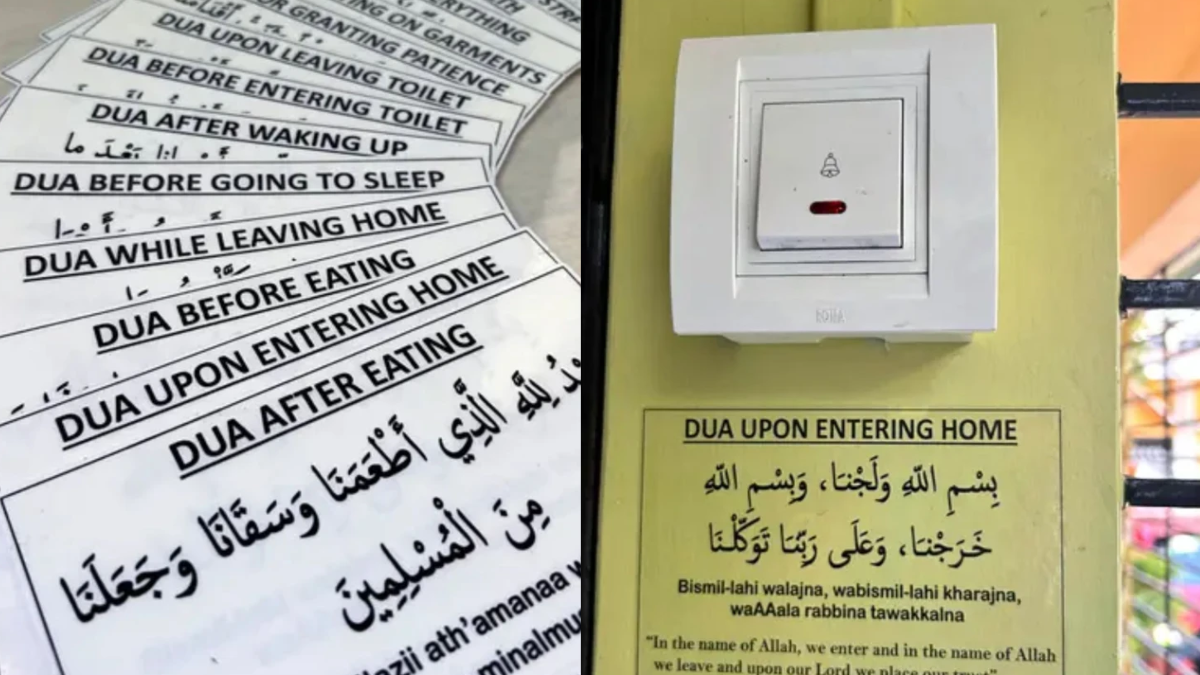 ON GARMENTS
GRANTING PATIENCE
DUA UPON LEAVING TOILET
DUA BEFORE ENTERING TOILET
DUA AFTER WAKING UP
بَعْدَ ما
DUA BEFORE GOING TO SLEEP
DUA WHILE LEAVING HOME
DUA BEFORE EATING
DUA UPON ENTERING HOME
DUA AFTER EATING
لِلَّهِ الَّذِي أَطْعَمَنَا وَسَقَانَا وَجَعَلَنَا
مِنَ الْمُسْلِمِينَ
ath'amanaa
DUA UPON ENTERING HOME
بِسْمِ اللّهِ وَلَجْنـَا، وَبِسْمِ اللّهِ
خَـرَجْنـَا، وَعَلَى رَبِّنـَا تَوَكّلْـنَا
Bismil-lahi walajna, wabismil-lahi kharajna,
waAAala rabbina tawakkalna
“In the name of Allah, we enter and in the name of Allah
we leave and upon our Lord we place our trust”